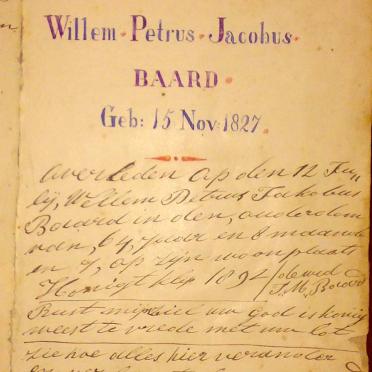 Willem Petrus Jacobus
BAARD
Geb: 15 Nov: 1827
Overleden op den 12 Ju
ly, Willem Petrus Jakobus
Baard in den, ouderdom
van, 64, Jaar en 8 maande
en op zijn woonplaats
klip 1892 / de wed
J. M. Baard
Rust mijn ziel uw god is koning
weest te vrede met uw lot
zie hoe alles hier verander
en